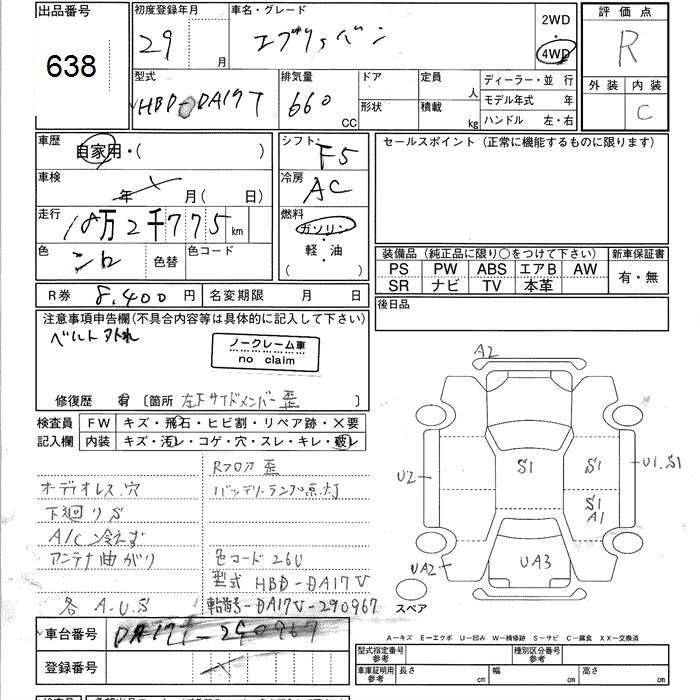 出品番号
638
初度登録年月
29 月
車名・グレード
エブリィバン
2WD
・
4WD
評価点
R
外装 内装
C
型式
HBD-DA17T
排気量
660 CC
ドア
形状
定員 人
積載 kg
ディーラー・並行
モデル年式 年
ハンドル 左・右
車歴
自家用・( )
シフト
F5
セールスポイント (正常に機能するものに限ります)
車検
年 月( 日)
冷房
AC
走行
18万2千775km
燃料
ガソリン
軽・油
( )
色
シロ
色替
色コード
装備品 (純正品に限り○をつけて下さい) 新車保証書
PS PW ABS エアB AW
SR ナビ TV 本革
有・無
R券 8,400円 名変期限 月 日
後日品
注意事項申告欄(不具合内容等は具体的に記入して下さい)
ベルト
ノークレーム車
no claim
修復歴 有 〔箇所 左下サイドメンバー歪 〕
検査員
記入欄
FW キズ・飛石・ヒビ割・リペア跡・×要
内装 キズ・汚レ・コゲ・穴・スレ・キレ・破レ
Rフロア 歪
オーディオレス.穴
バッテリーランプ点灯
下廻りS
A/C冷えず
アンテナ曲がり
色コード 26U
型式 HBD-DA17V
各A.U.S
車台番号-DA17V-290967
A2
S1
S1
U1.S1
U2
S1
A1
UA2
UA3
スペア
車台番号 DA17T-290967
登録番号
A－キズ E－エクボ U－凹み W－補修跡 S－サビ C－腐食 XX－交換済
型式指定番号
参考
種別区分番号
参考
車庫証明用
参考
長さ cm 幅 cm 高さ cm